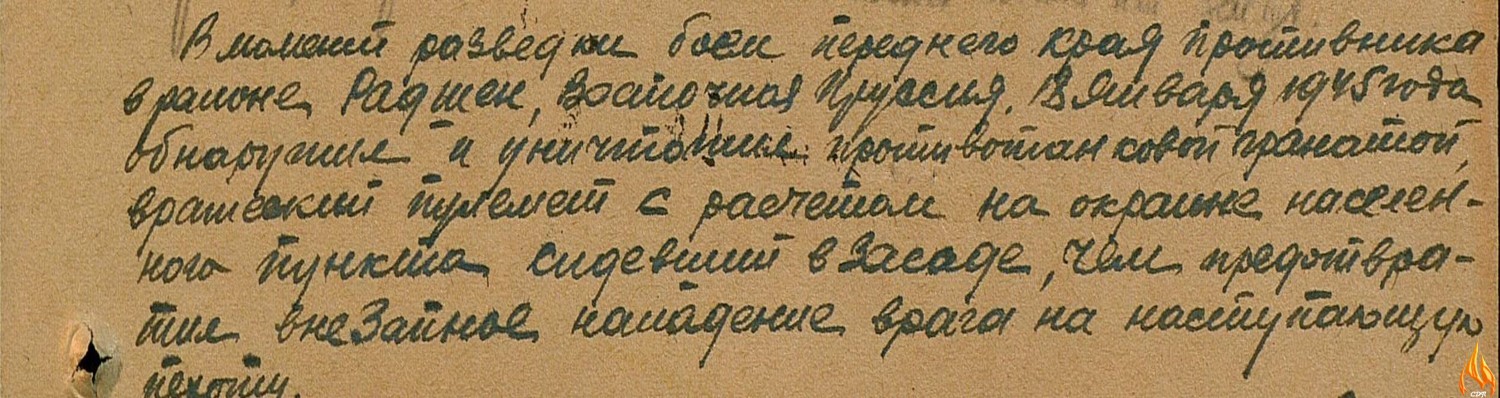 В момент разведки боем переднего края противника
в районе Радшен, Восточная Пруссия, 13 января 1945 года
обнаружил и уничтожил противотанковой гранатой,
вражеский пулемет с расчетом на окраине населен-
ного пункта сидевший в засаде, чем предотвра-
тил внезапное нападение врага на наступающую
пехоту.
CDR